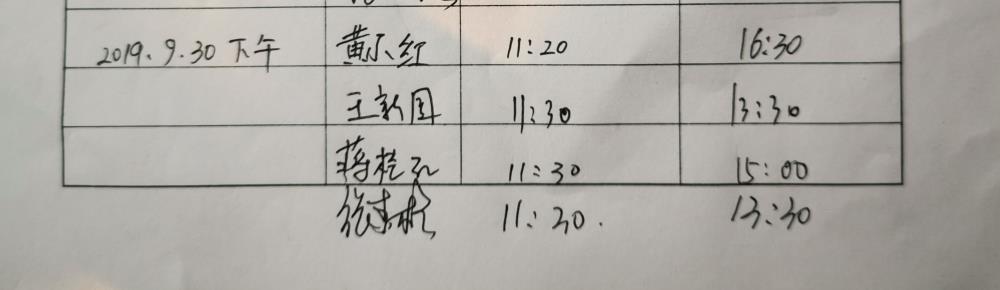 2019.9.30下午 黄小红 11:20 16:30
王新国 11:30 13:30
蒋 11:30 15:00
11:30. 13:30